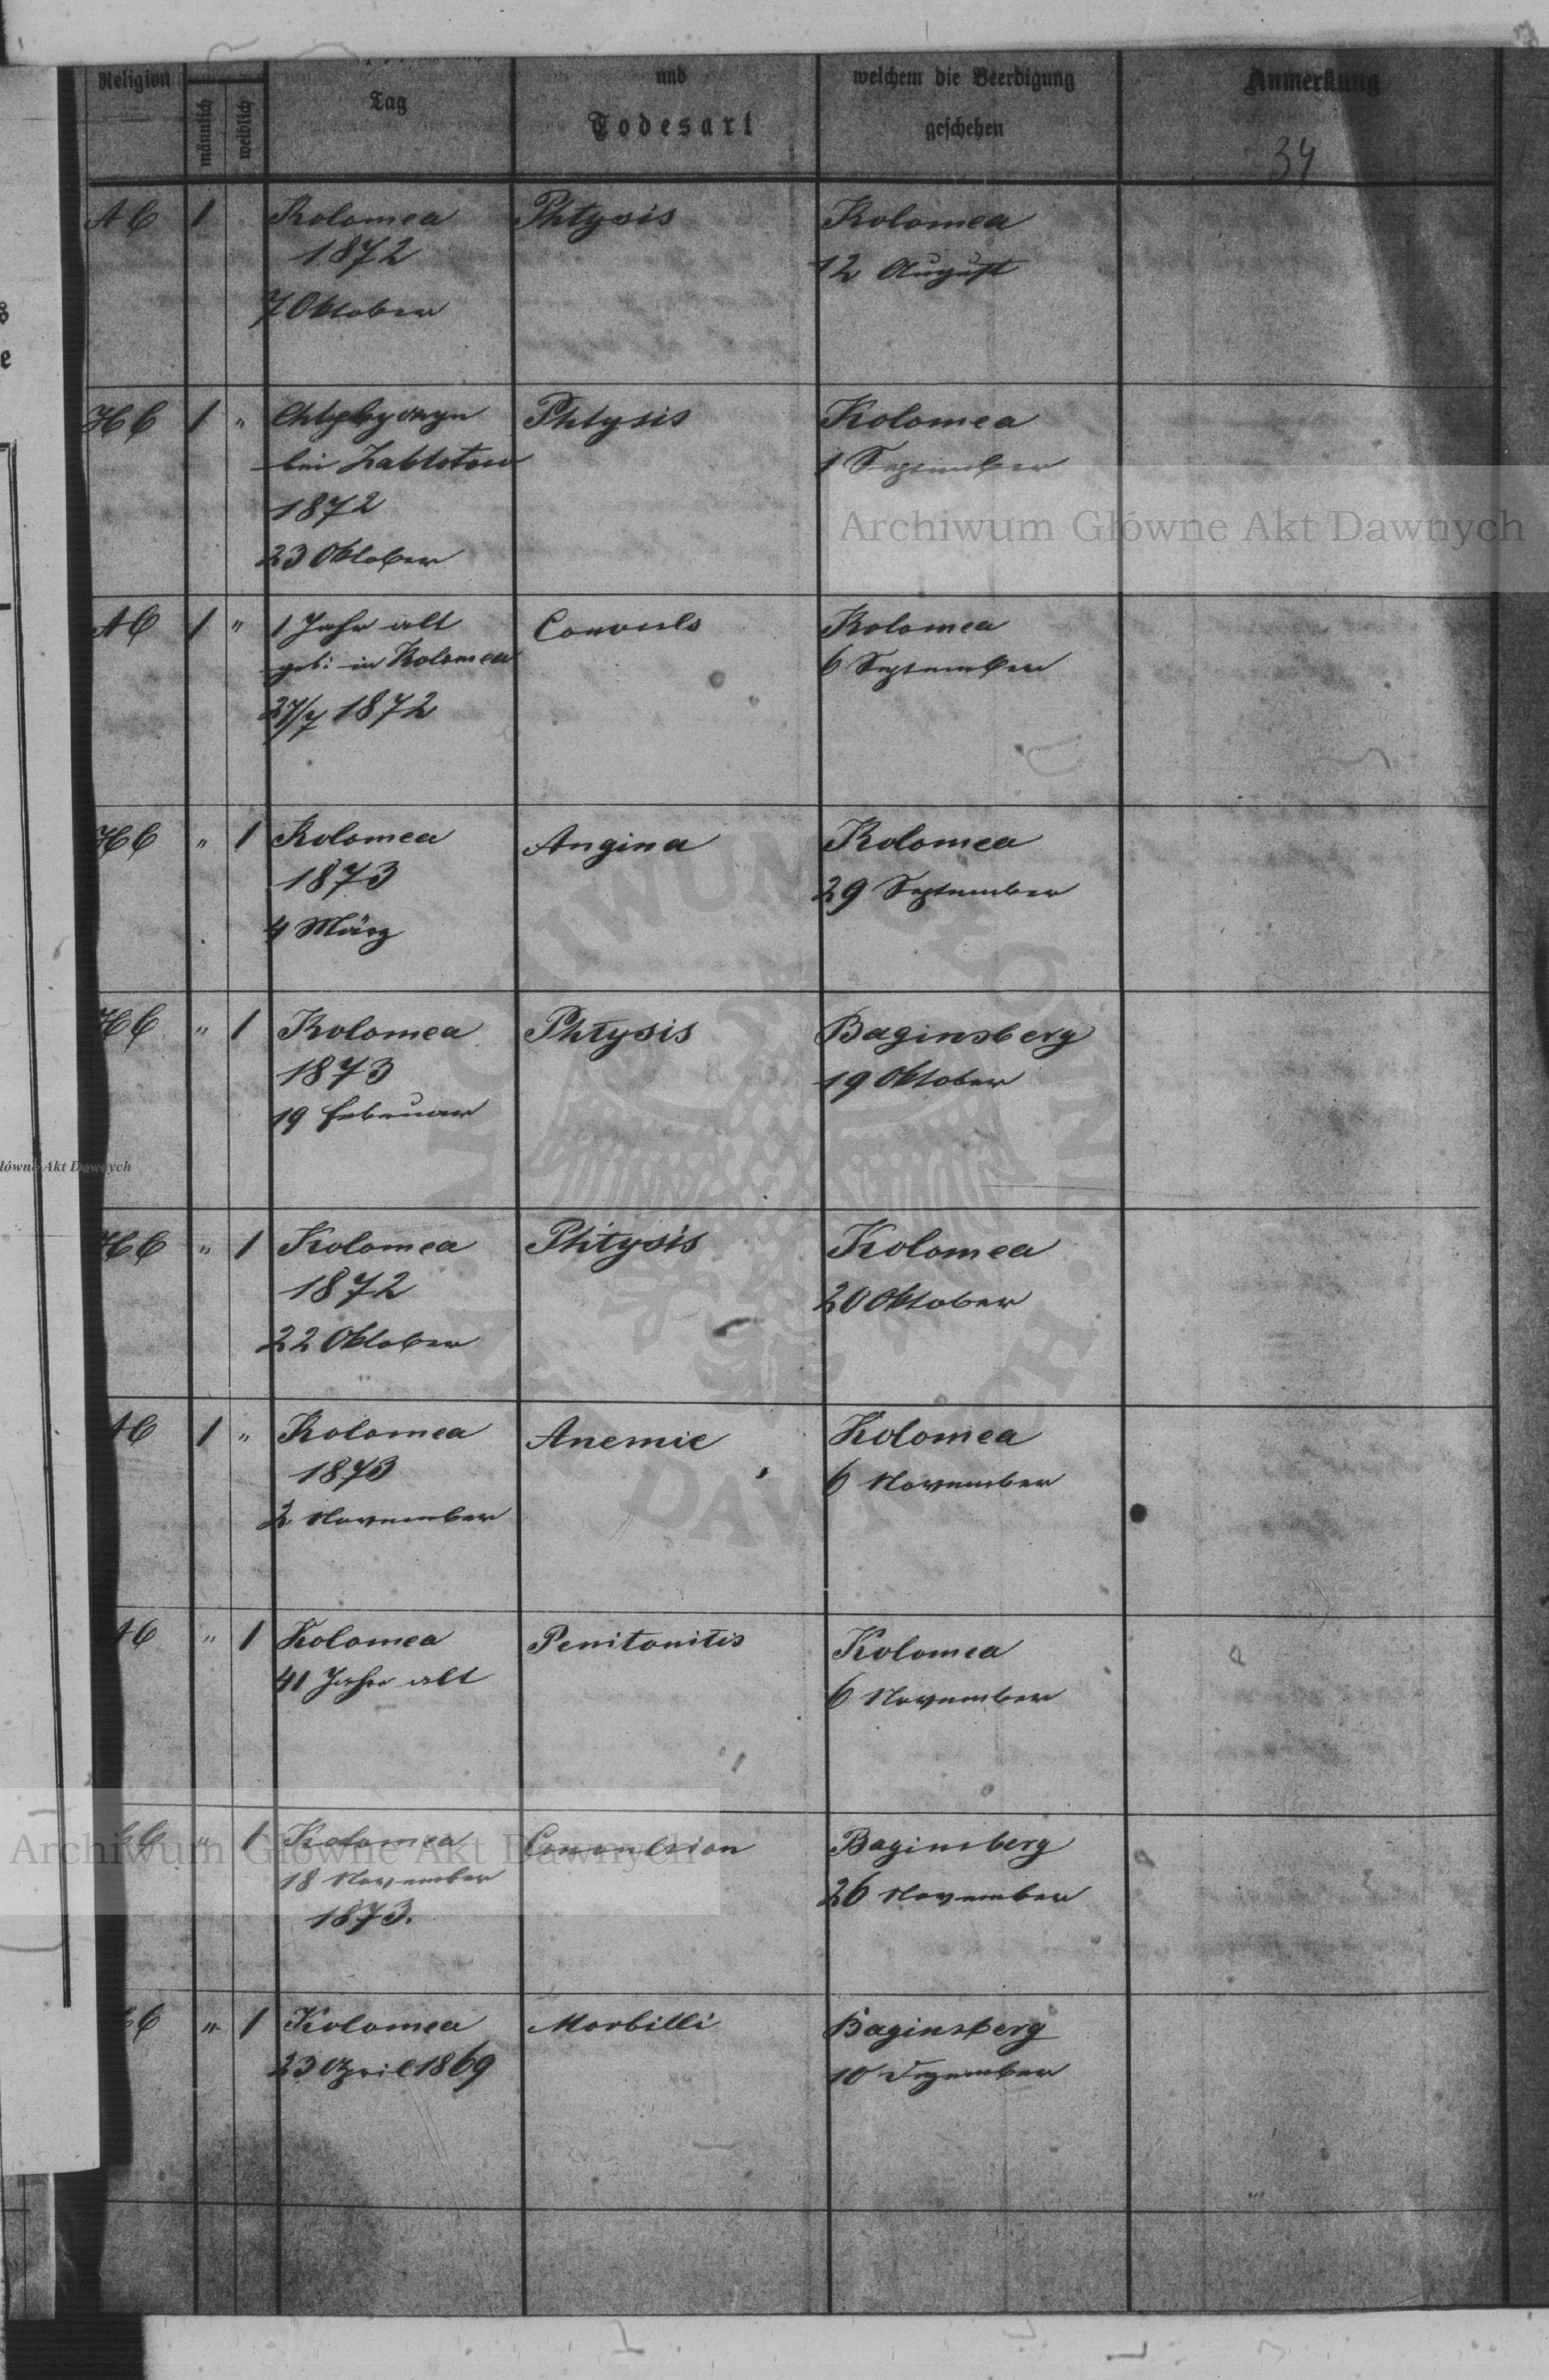 Religion
männlich
weiblich
Tag
und
Todesart
welchem die Beerdigung
geschehen
Anmerkung
34
AC 1 " Kolomea Phtysis Kolomea
1872 12 August
7 Oktober
HC 1 " Phtysis Kolomea
bei Zablotow 1 September
1872
23 Oktober
Archiwum Główne Akt Dawnych
AC 1 " 1 Jahr alt Convuls Kolomea
geb: in Kolomea 6 September
27/7 1872
HC " 1 Kolomea Angina Kolomea
1873 29 September
4 März
HC " 1 Kolomea Phtysis Baginsberg
1873 19 Oktober
19 Februar
łówne Akt Dawnych
HC " 1 Kolomea Phtysis Kolomea
1872 20 Oktober
22 Oktober
AC 1 " Kolomea Anemie Kolomea
1873 6 November
2 November
AC " 1 Kolomea Penitonitis Kolomea
41 Jahre alt 6 November
" 1 Kolomea Convulsion Baginsberg
Archiwum Główne Akt Dawnych
18 November 26 November
1873.
" 1 Kolomea Morbilli Baginsberg
23 April 1869 10 Dezember